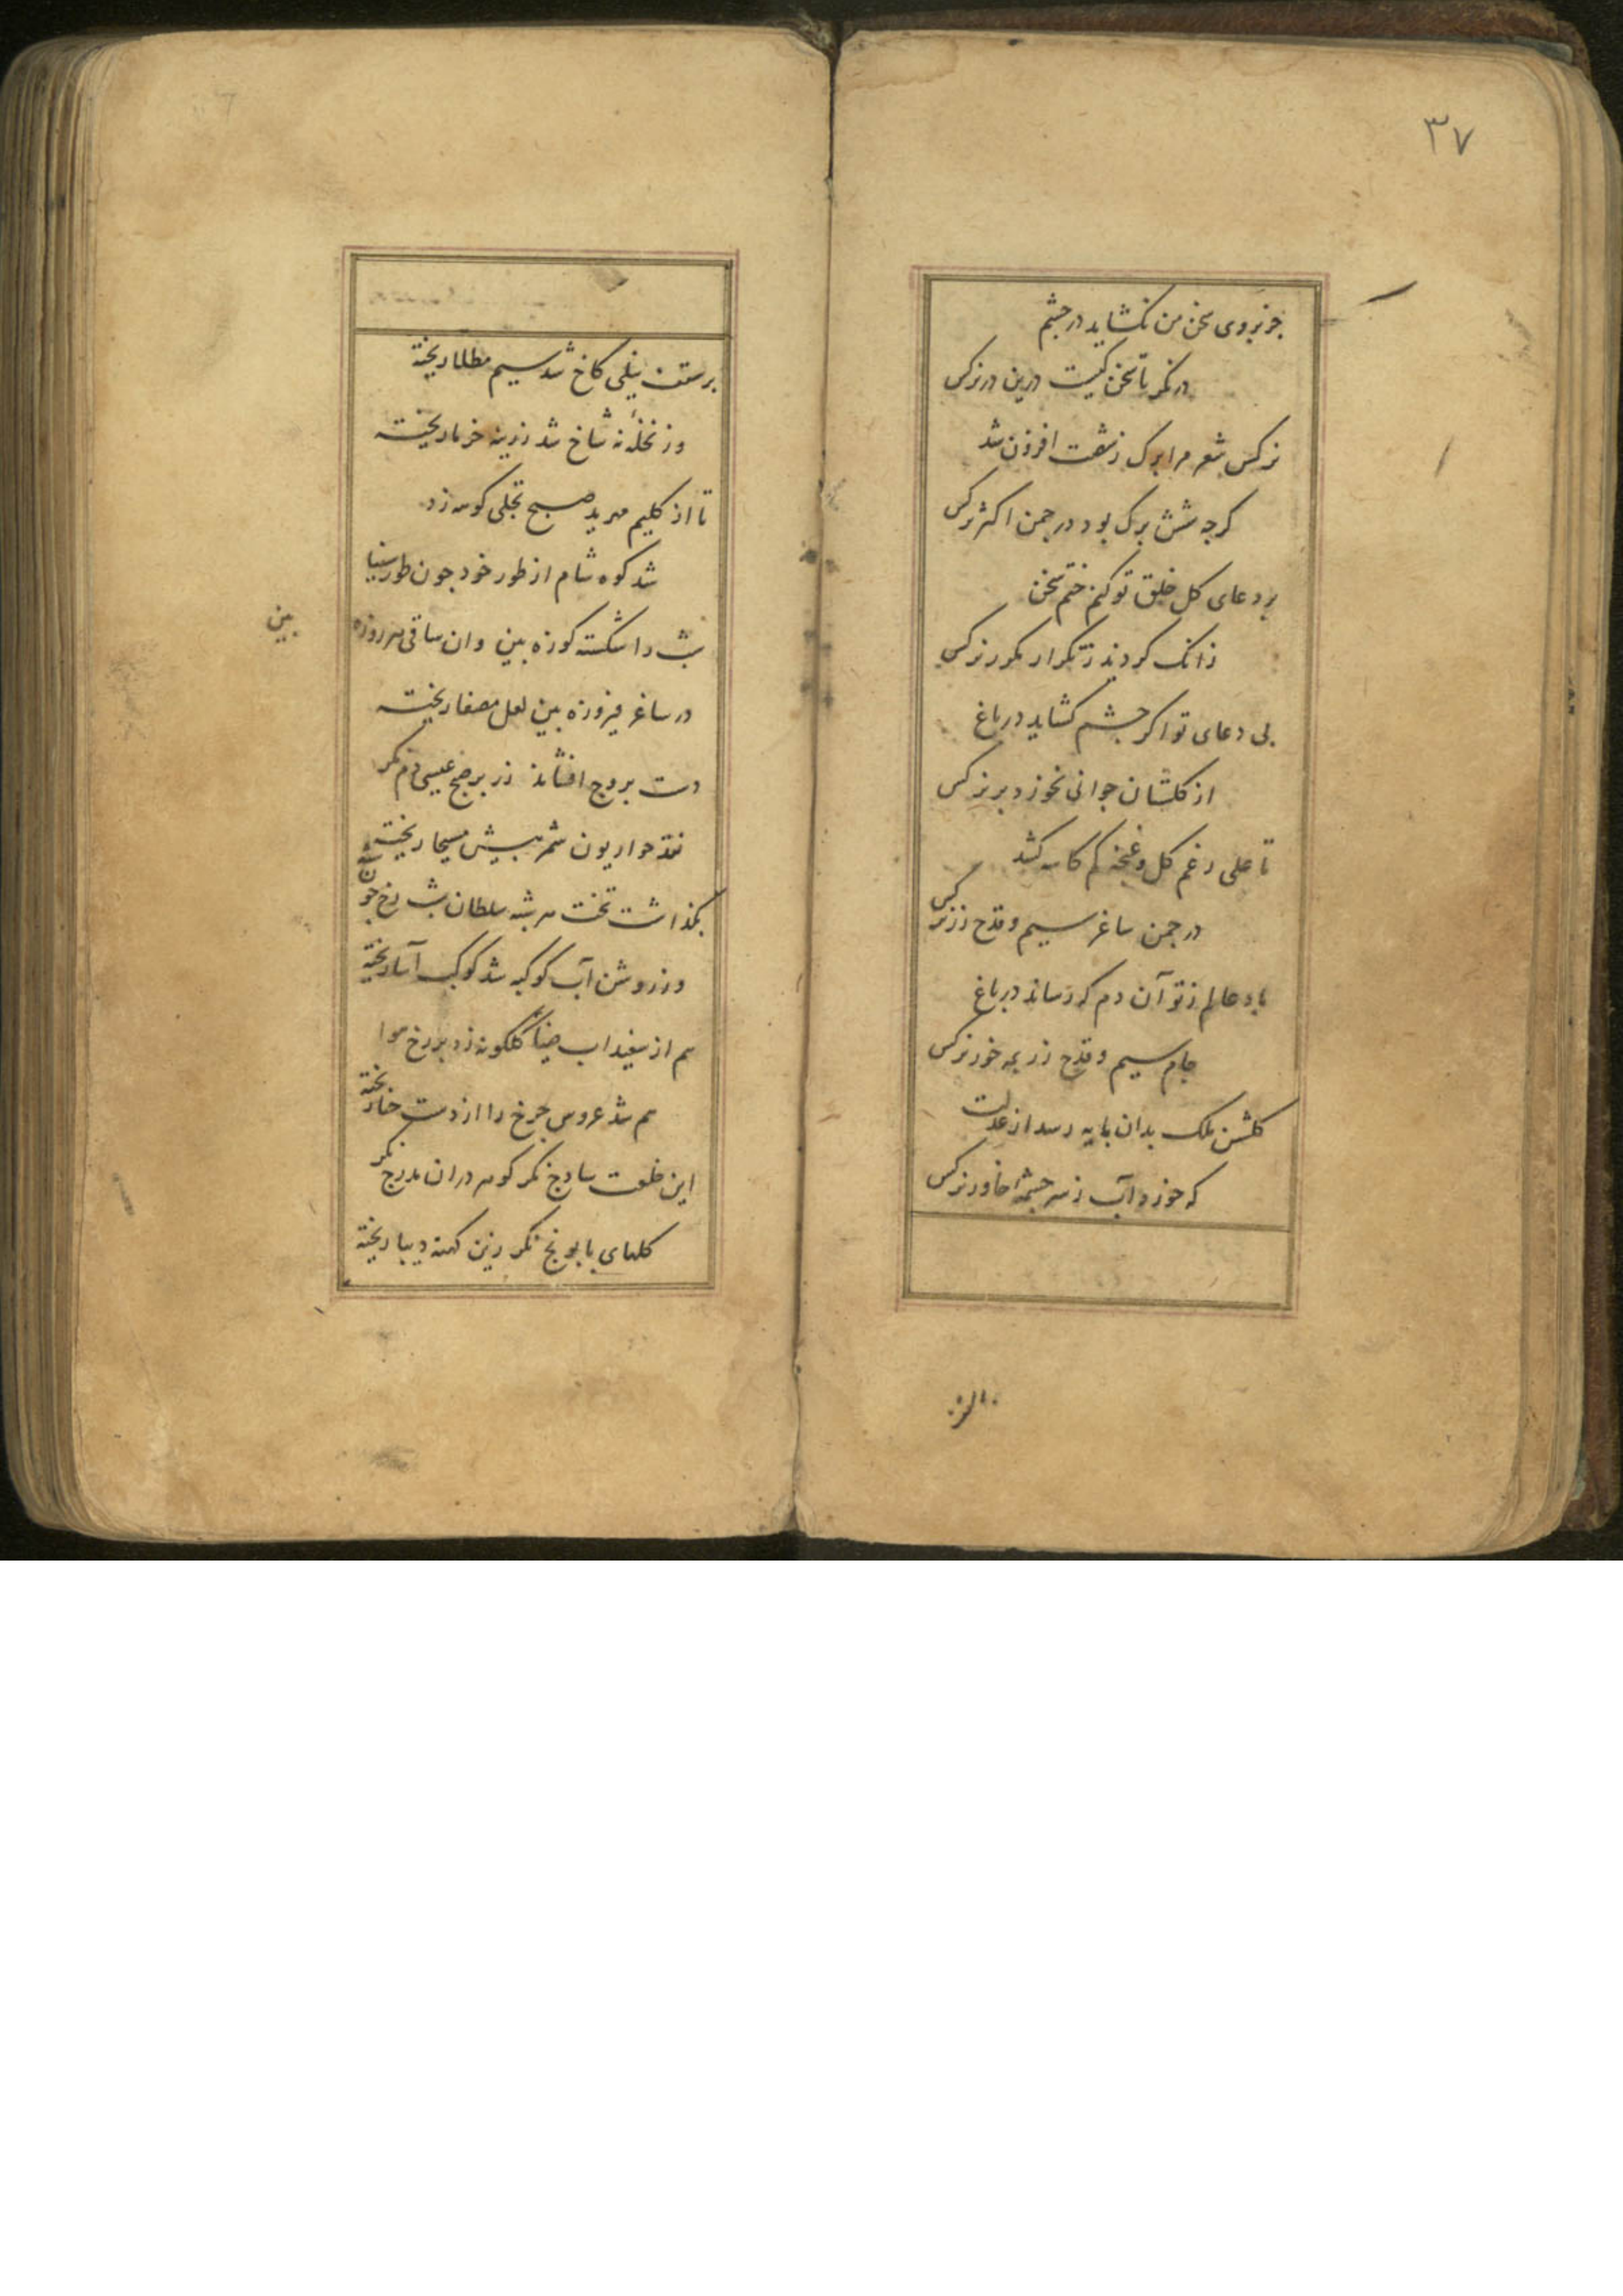 ۳۷
جز بروی سخن من نکشاید در چشم
در نکر تا سخن کیست درین در نرکس
نرکس شعر مرا برک ز شصت افزون شد
کرچه شش برک بود در چمن اکثر نرکس
بر دعای کل خلق تو کنم ختم سخن
زانک کردند ز تکرار مکرر نرکس
بی دعای تو اکر چشم کشاید در باغ
از کلستان جوانی نخورد بر نرکس
تا علی رغم کل و غنچه کم کاسه کشد
در چمن ساغر سیم و قدح زر نرکس
باد عالم ز تو آن دم که رساند در باغ
جام سیم و قدح زر بمه خور نرکس
کلشن ملک بدان پایه رسد از عدلت
که خورد آب ز سر چشمه خاور نرکس
بر سقف نیلی کاخ شد سیم مطلا ریخته
وز نخله نه شاخ شد زرینه خرما ریخته
تا از کلیم مهر ید صبح تجلی کوس زد
شد کوه شام از طور خود چون طور سینا
شب را شکسته کوزه بین وان ساقی هر روزه
بین
در ساغر فیروزه بین لعل مصفا ریخته
دست بروج افشاند زر بر صبح عیسی دم نکر
نقد حواریون شمر پیش مسیحا ریخته
بکذاشت تخت مه بشه سلطان شب رخ چون
وز روشن آب کوکبه شد کوکب آسا ریخته
هم از سفیداب ضیا کلکونه زد بر رخ هوا
هم شد عروس چرخ را از دست حنا ریخته
این خلعت سادج نکر کوهر در آن مدرج نکر
کلهای بابونج نکر زین کهنه دیبا ریخته